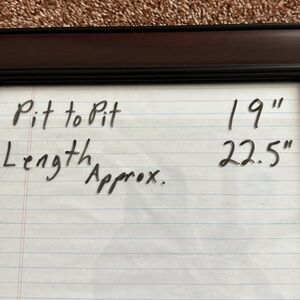 Pit to Pit 19"
Length 22.5"
Approx.